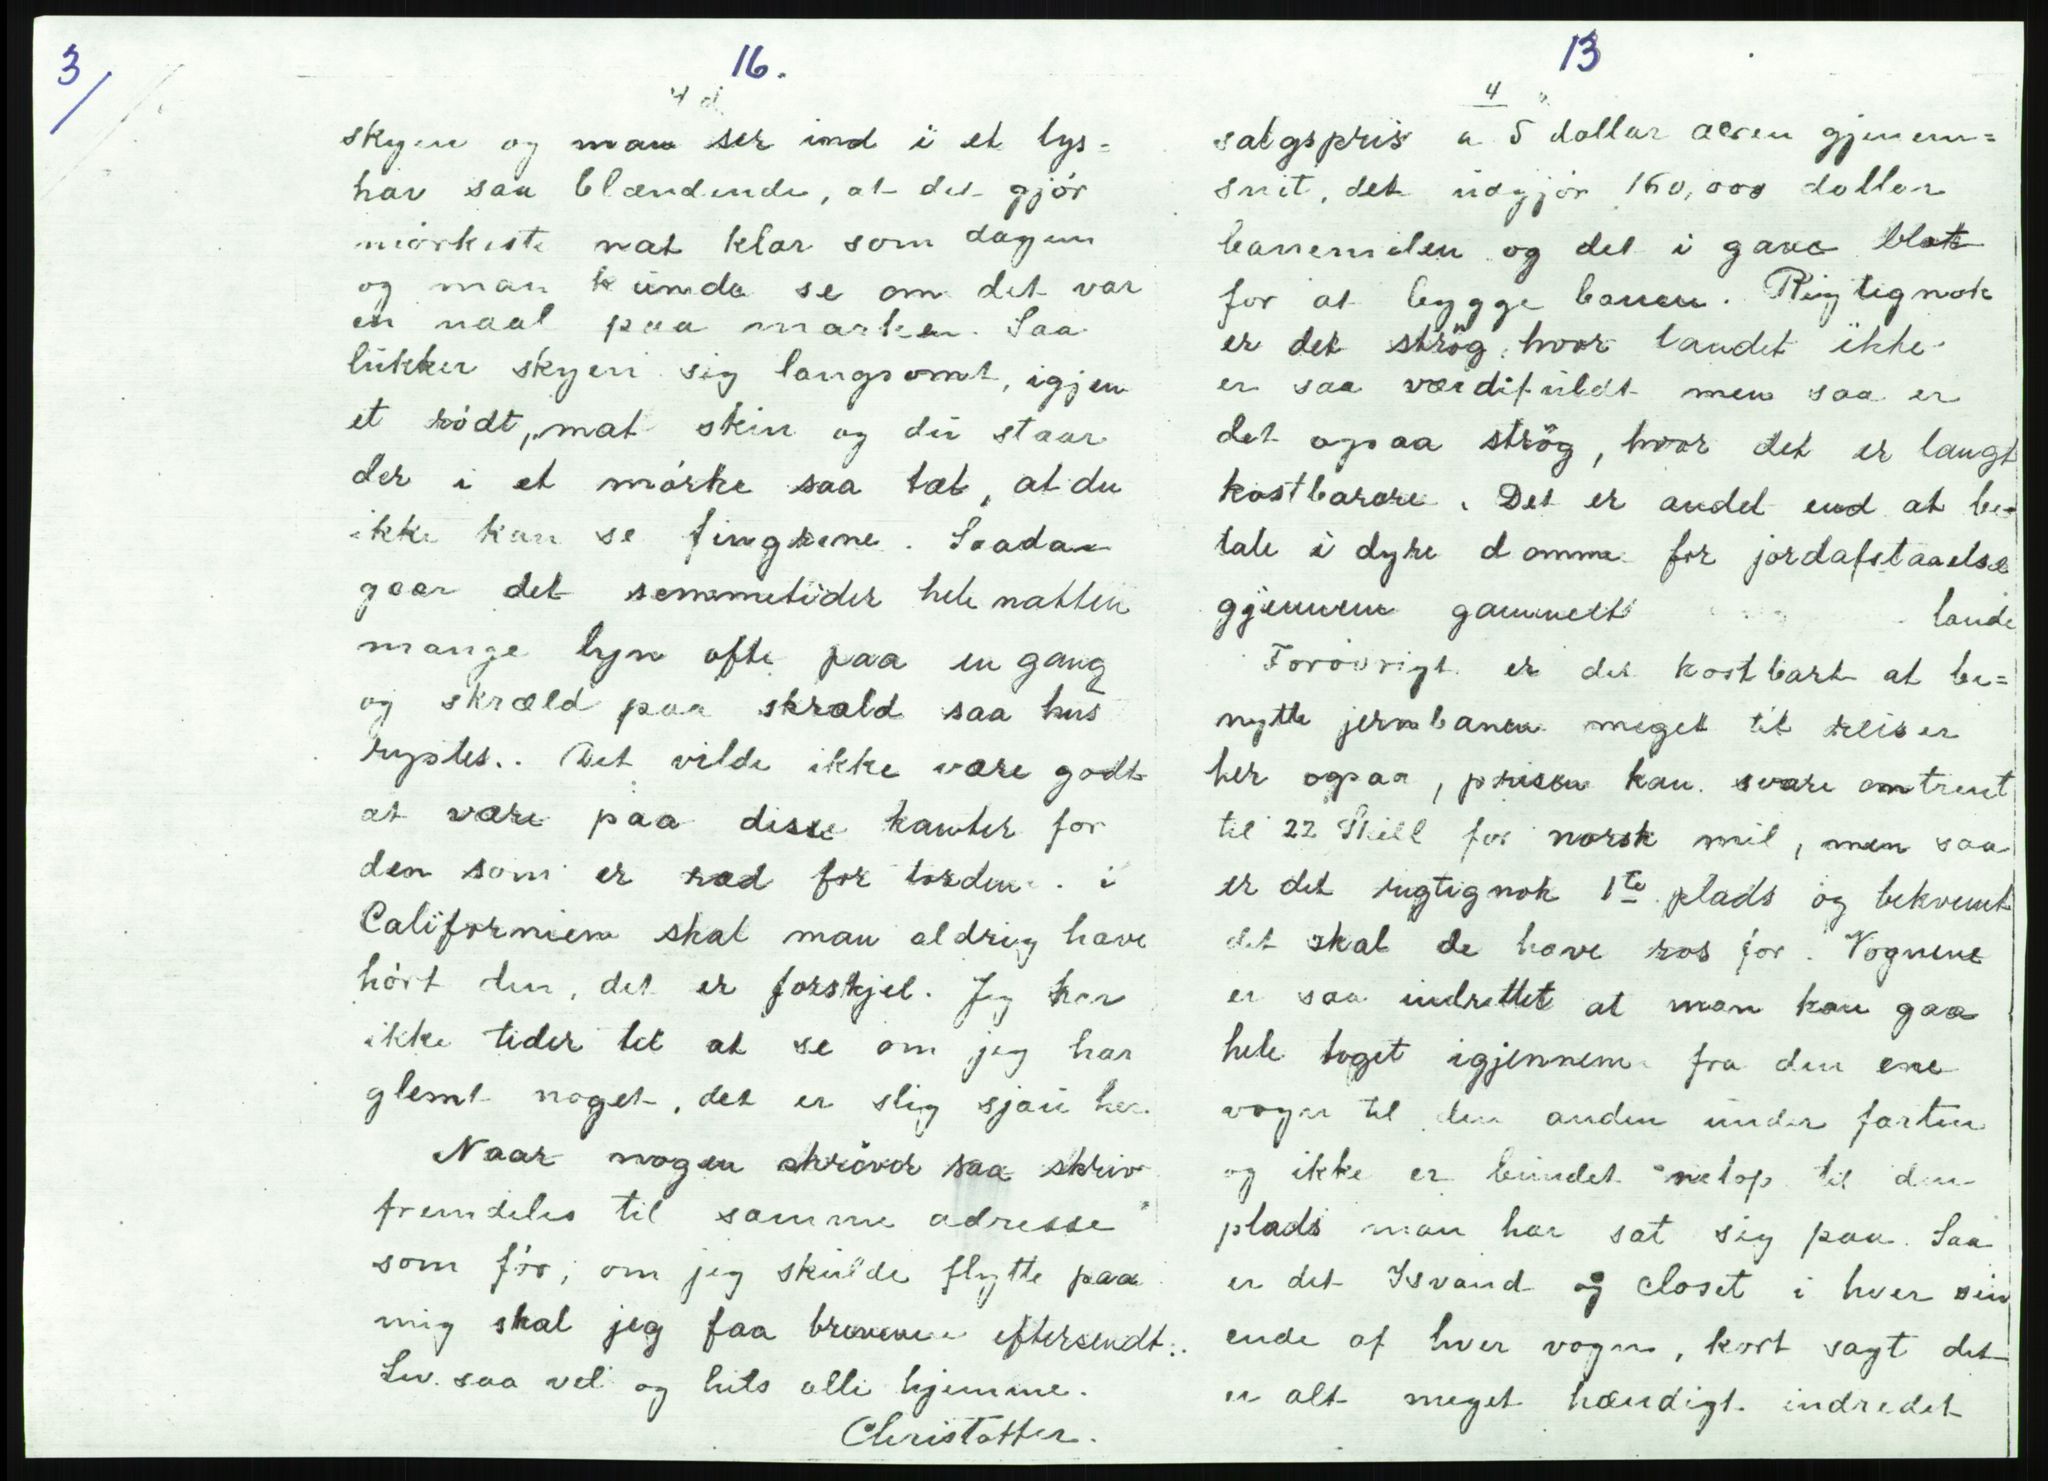 3/
16.
4 d
skyen og man ser ind i et lys=
hav saa blændende, at det gjór
mórkeste nat klar som dagen
og man kunde se om det var
en naal paa marken. Saa
lukker skyen sig langsomt, igjen
et ródt, mat skin og du staar
der i et mórke saa tæt, at du
ikke kan se fingrene. Saadan
gaar det sommetider hele natten
mange lyn ofte paa en gang
og skræld paa skræld saa hus
rystes.. Det vilde ikke være godt
at være paa disse kanter for
den som er ræd for torden. i
Californien skal man aldrig have
hórt den, det er forskjel. Jeg har
ikke tider til at se om jeg har
glemt noget, det er slig sjau her.
Naar nogen skriver saa skriv
fremdeles til samme adresse
som fór, om jeg skulde flytte paa
mig skal jeg faa brevene eftersendt..
Lev saa vel og hils alle hjemme.
Christoffer.
13
4
salgspris a 5 dollar acren gjenem=
snit, det udgjór 160,000 dollar
banemilen og det i gave blot
for at bygge banen. Rigtignok
er det strög hvor landet ikke
er saa værdifuldt men saa er
det ogsaa strög, hvor det er langt
kostbarere. Det er andet end at be=
tale i dyre domme for jordafstaaelse
gjennem gammelt lande
Foróvrigt er det kostbart at be=
nytte jernbanen meget til reiser
her ogsaa, prisen kan svare omtrent
til 22 Skill for norsk mil, men saa
er det rigtignok 1te plads og bekvemt
det skal de have ros for. Vognene
er saa indrettet at man kan gaa
hele toget igjennem fra den ene
vogn til den anden under farten
og ikke er bundet netop til den
plads man har sat sig paa. Saa
er det Isvand og closet i hver sin
ende af hver vogn, kort sagt det
er alt meget hændigt indredet